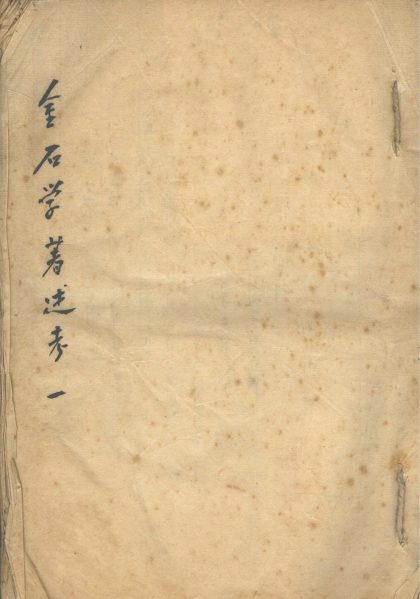 金石学著述考 一